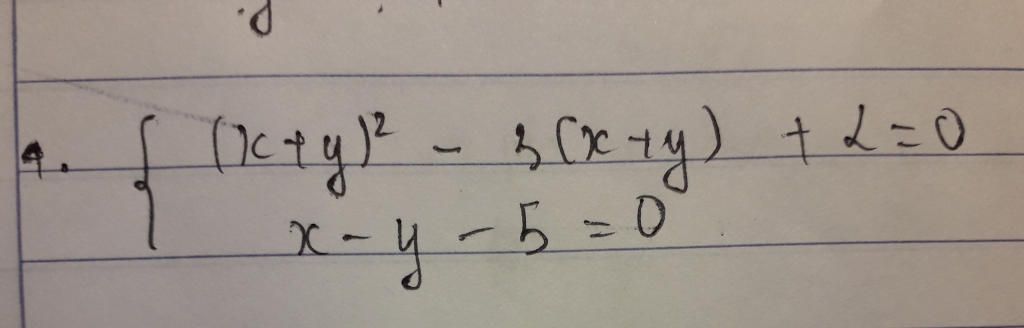 4. { (x+y)² - 3(x+y) + 2 = 0
x - y - 5 = 0